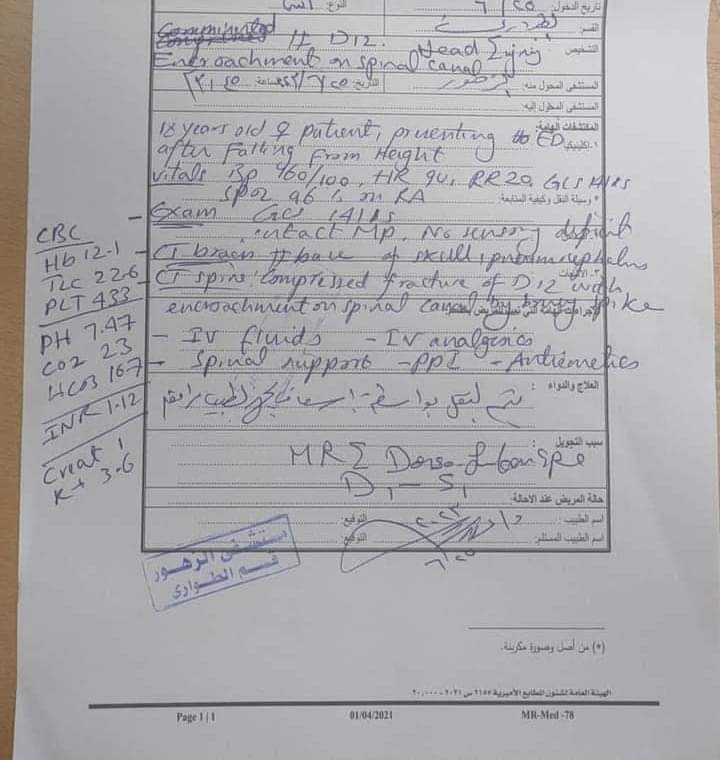 تاريخ الدخول: ٢٥/٦
النوع: أنثى
القسم:
Comminuted # D12. Head Injury
التشخيص
Encroachment on spinal canal
المستشفى المحول منه:
التاريخ: ٢٥/٦/
المستشفى المحول إليه:
المكتشفات الهامة:
18 years old ♀ patient, presenting to ED
١- إكلينيكيا
after Falling From Height
vitals Bp 160/100, HR 90, RR 20, GCS 14/15
SpO2 96 % on RA
٥ وسيلة النقل وكيفية المتابعة:
- Exam GCS 14/15
intact Mp, No sensory deficit
- CT brain # base of skull, pneumocephalus
- CT spine: Compressed fracture of D12 with
encroachment on spinal canal by bony spike
- IV fluids - IV analgesics
- Spinal support - PPI - Antiemetics
CBC
Hb 12.1
TLC 22.6
PLT 433
PH 7.47
CO2 23
HCO3 16.7
INR 1.12
Creat 1
K+ 3.6
العلاج والدواء :
يتم النقل بواسطة إسعاف مجهز + طبيب مرافق
سبب التحويل :
MRI Dorso-lumbar spine
D1 - S1
حالة المريض عند الاحالة:
اسم الطبيب :
التوقيع:
اسم الطبيب المستلم:
التوقيع:
مستشفى الزهور
قسم الطوارئ
(٥) من أصل وصورة مكربنة.
الهيئة العامة لشئون المطابع الأميرية ٢١٥٥ س ٢٠٢١ - ٢٠,٠٠٠
Page 1 | 1
01/04/2021
MR-Med -78